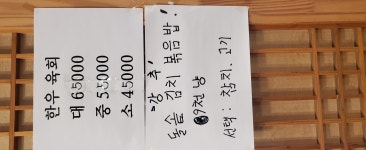 한우 육회
대 65000
중 55000
소 45000
"강추"
돌솥 김치 볶음밥!
9천 냥
선택 : 참치. 고기